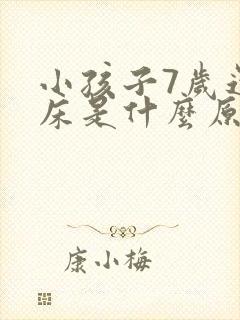 小孩子7歲
床是什麼原
康小梅